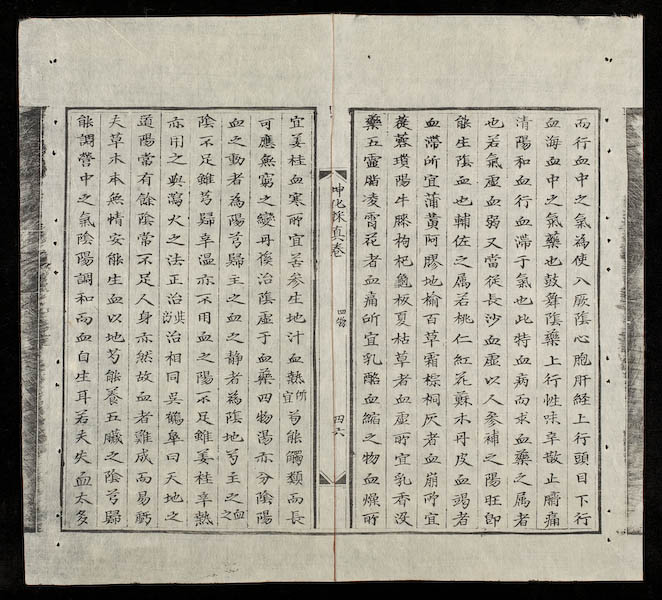 而行血中之氣為使入厥陰心胞肝経上行頭目下行
血海血中之氣藥也鼓舞陰藥上行性味辛散止臍痛
清陽和血行血滯于氣也此特血病而求血藥之属者
也若氣虛血弱又當從長沙血虛以人参補之陽旺即
能生陰血也輔佐之属若桃仁紅花蘇木丹皮血竭者
血滯所宜蒲黄阿膠地榆百草霜棕榈灰者血崩所宜
蓯蓉瓊陽牛膝枸杞龜板夏枯草者血虛所宜乳香没
藥五靈脂凌霄花者血痛所宜乳酪血縮之物血燥所
坤化採真卷
四物
四六
宜姜桂血寒所宜苦参生地汁血熱所宜苟能觸類而長
可應無窮之變丹後治陰虛于血藥四物湯亦分陰陽
血之動者為陽芎歸主之血之静者為陰地芍主之血之
陰不足雖芎歸辛温亦不用血之陽不足雖姜桂辛熱
亦用之與瀉火之法正治從治相同吳鶴皋曰天地之
道陽常有餘陰常不足人身亦然故血者難成而易虧
夫草木本無情安能生血以地芍能養五臟之陰芎歸
能調營中之氣陰陽調和而血自生耳若夫失血太多